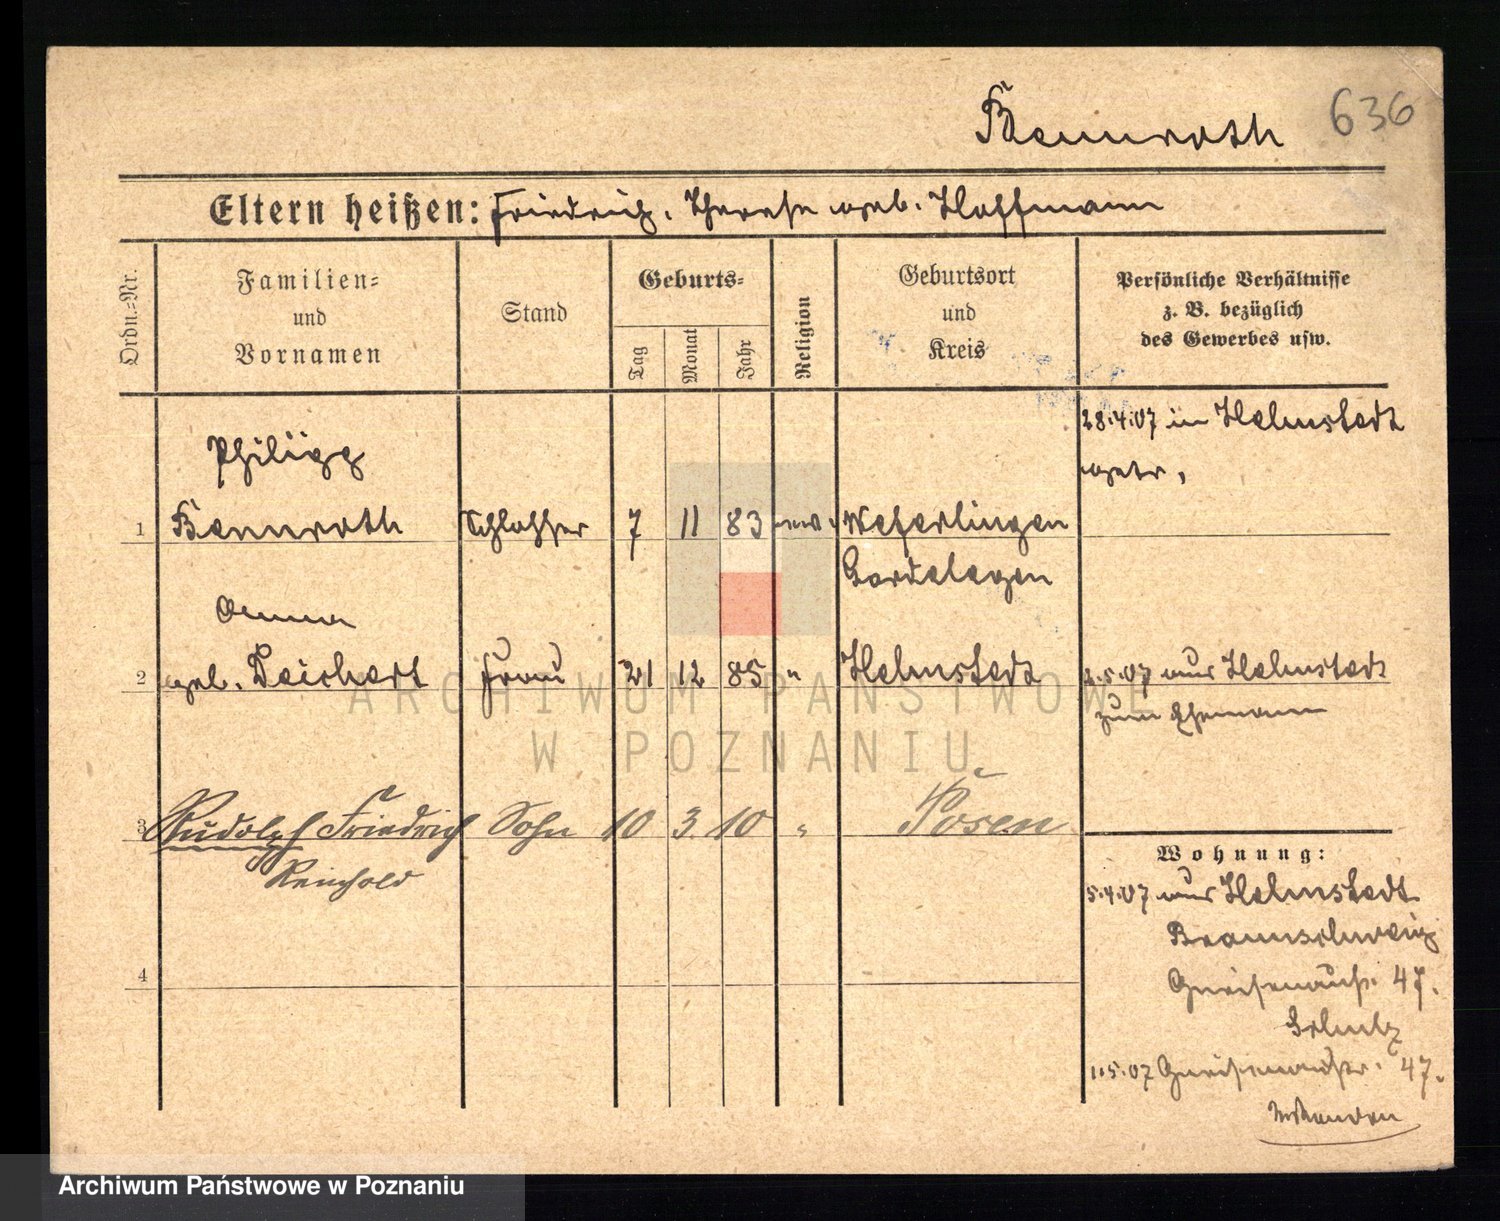 Bennroth 636
Eltern heißen: Friedrich, Therese geb. Hoffmann
Ordn.=Nr.
Familien=
und
Vornamen
Stand
Geburts=
Tag
Monat
Jahr
Religion
Geburtsort
und
Kreis
Persönliche Verhältnisse
z. B. bezüglich
des Gewerbes usw.
Philipp
1 Bennroth Schlosser 7 11 83 Weferlingen
Gardelegen
28.4.07 in Helmstedt
getr.
Anna
2 geb. Deichert Frau 21 12 85 " Helmstedt
2.5.07 aus Helmstedt
zum Ehemann
3 Rudolph Friedrich Sohn 10 3 10 " Posen
Reinhold
4
Wohnung:
5.4.07 aus Helmstedt
Braunschweig
Gneisenaustr. 47.
1.5.07 Gneisenaustr. 47.
ARCHIWUM PAŃSTWOWE
W POZNANIU
Archiwum Państwowe w Poznaniu